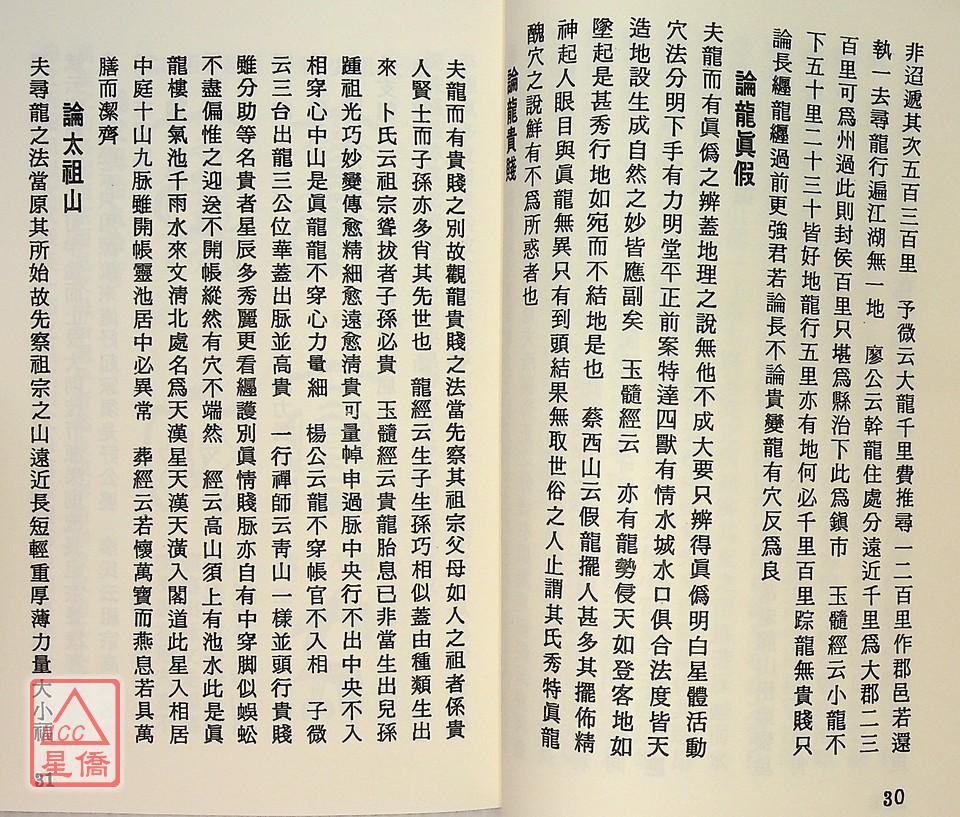 非迢遞其次五百三百里　予微云大龍千里費推尋一二百里作郡邑若還
執一去尋龍行遍江湖無一地　廖公云幹龍住處分遠近千里爲大郡二三
百里可爲州過此則封侯百里只堪爲縣治下此爲鎭市　玉髓經云小龍不
下五十里二十三十皆好地龍行五里亦有地何必千里百里踪龍無貴賤只
論長纒龍纒過前更強君若論長不論貴變龍有穴反爲良
論龍眞假
夫龍而有眞僞之辨蓋地理之說無他不成大要只辨得眞僞明白星體活動
穴法分明下手有力明堂平正前案特達四獸有情水城水口俱合法度皆天
造地設生成自然之妙皆應副矣　玉髓經云　亦有龍勢侵天如登客地如
墜起是甚秀行地如宛而不結地是也　蔡西山云假龍擺人甚多其擺佈精
神起人眼目與眞龍無異只有到頭結果無取世俗之人止謂其氏秀特眞龍
醜穴之說鮮有不爲所惑者也
論龍貴賤
夫龍而有貴賤之別故觀龍貴賤之法當先察其祖宗父母如人之祖者係貴
人賢士而子孫亦多肖其先世也　龍經云生子生孫巧相似蓋由種類生出
來　卜氏云祖宗聳拔者子孫必貴　玉髓經云貴龍胎息已非當生出兒孫
踵祖光巧妙變傳愈精細愈遠愈淸貴可量幛申過脈中央行不出中央不入
相穿心中山是眞龍龍不穿心力量細　楊公云龍不穿帳官不入相　子微
云三台出龍三公位華蓋出脈並高貴　一行禪師云靑山一樣並頭行貴賤
雖分助等名貴者星辰多秀麗更看纒護別眞情賤脉亦自有中穿脚似蜈蚣
不盡偏惟之迎送不開帳縱然有穴不端然　經云高山須上有池水此是眞
龍樓上氣池千雨水來文淸北處名爲天漢星天漢天潢入閣道此星入相居
中庭十山九脈雖開帳靈池居中必異常　葬經云若懷萬寶而燕息若具萬
膳而潔齊
論太祖山
夫尋龍之法當原其所始故先察祖宗之山遠近長短輕重厚薄力量大小福
31
30
ICC
星僑